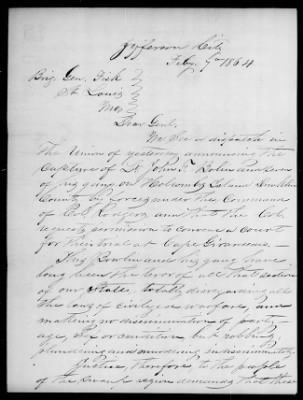 Jefferson City
Feby 9th 1864
Brig. Gen. Fisk
St Louis
Mo
Dear Genl.
We see a dispatch in
the Union of yesterday announcing the
Capture of Lt John F. Bolin and seven
of his gang on Holcomb's Island Dunklin
County by forces under the Command
of Col Rodgers and that the Col.
requests permission to convene a Court
for their trial at Cape Girardeau —
This Bowlin and his gang have
long been the terror of all that section
of our State, totally disregarding all
the laws of civilized warfare, and
making no discrimination of party
age, sex or condition, but robbing
plundering and murdering indiscriminately
Justice, therefore, to the people
of the Swamp region demands that these